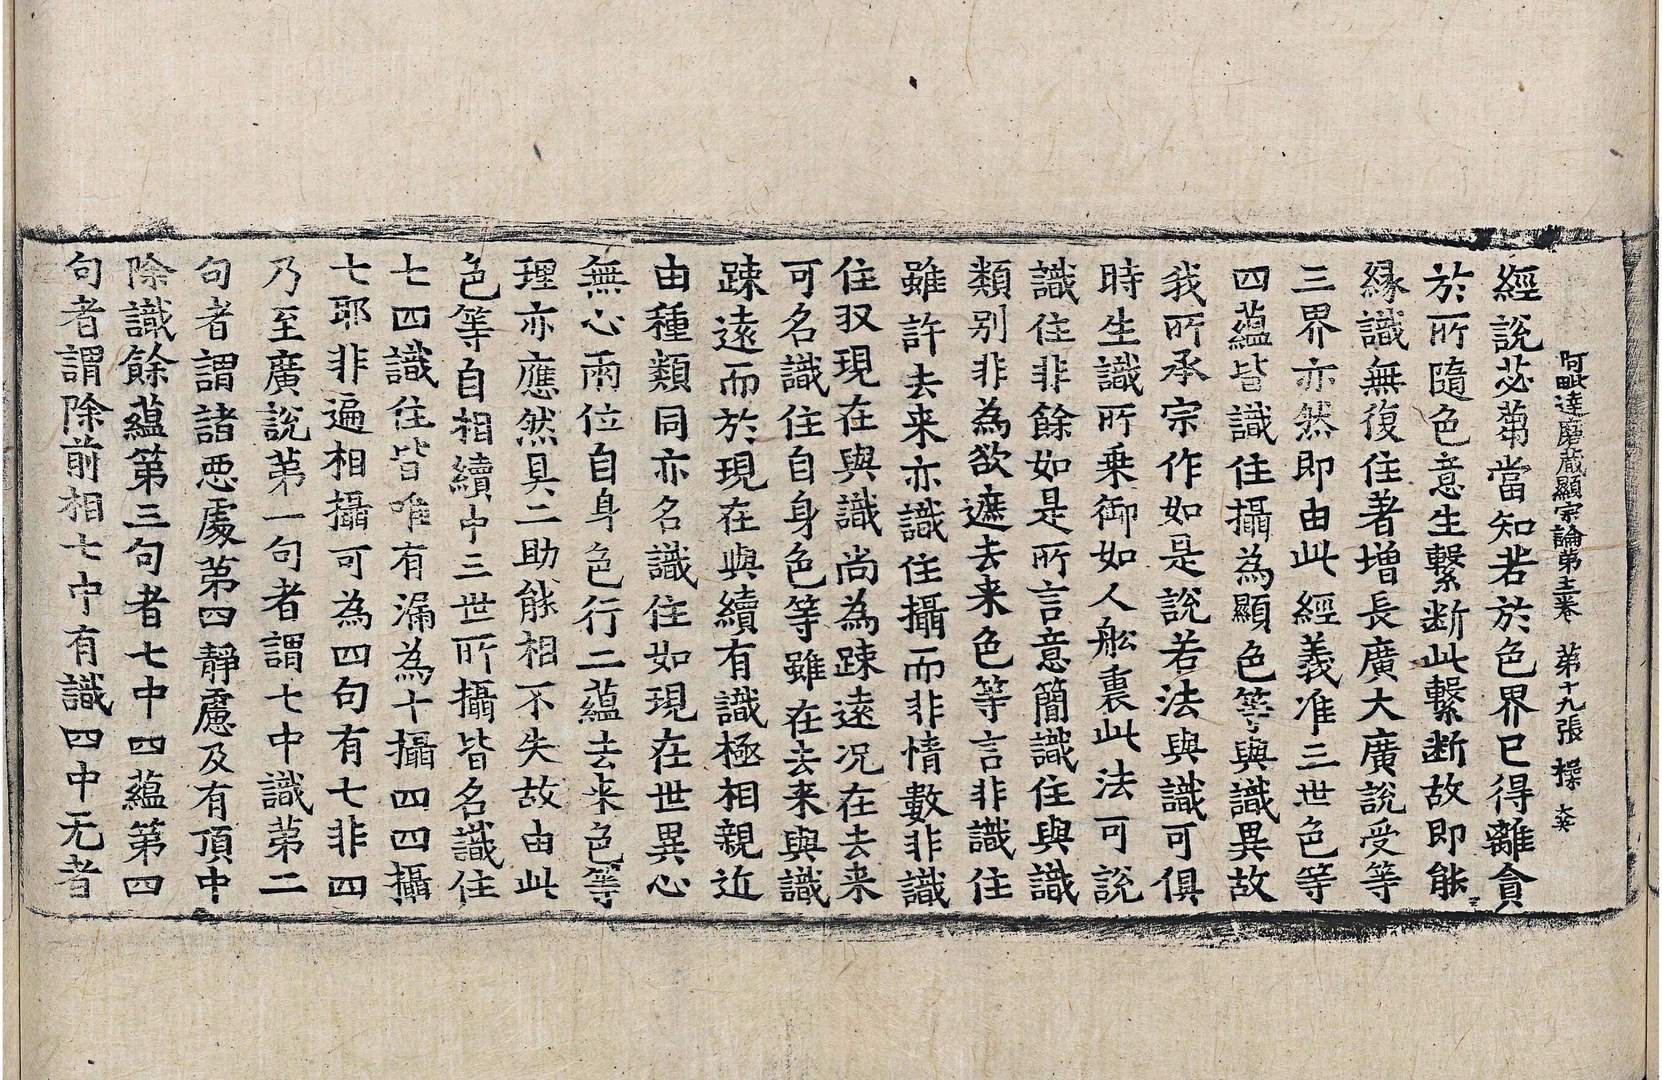 阿毗達磨藏顯宗論第十二卷 第十九張 操
經說苾蒭當知若於色界已得離貪
於所隨色意生繫斷此繫斷故即能
緣識無復住著增長廣大廣說受等
三界亦然即由此經義准三世色等
四蘊皆識住攝為顯色等與識異故
我所承宗作如是說若法與識可俱
時生識所乘御如人舩裏此法可說
識住非餘如是所言意簡識住與識
類別非為欲遮去来色等言非識住
雖許去来亦識住攝而非情數非識
住以現在與識尚為踈遠况在去来
可名識住自身色等雖在去来與識
踈遠而於現在與續有識極相親近
由種類同亦名識住如現在世異心
無心兩位自身色行二蘊去来色等
理亦應然具二助能相不失故由此
色等自相續中三世所攝皆名識住
七四識住皆唯有漏為十攝四四攝
七耶非遍相攝可為四句有七非四
乃至廣說第一句者謂七中識第二
句者謂諸惡處第四靜慮及有頂中
除識餘蘊第三句者七中四蘊第四
句者謂除前相七中有識四中无者